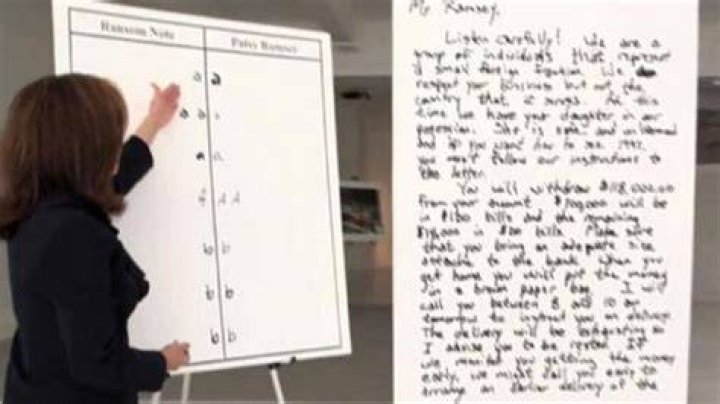 Ransom Note
Patsy Ramsey
a a
a
a a
b b
b b
b b
Mr. Ramsey,
Listen carefully! We are a
group of individuals that represent
a small foreign faction. We
respect your bussiness but not the
country that it serves. At this
time we have your daughter in our
posession. She is safe and unharmed
and if you want her to see 1997,
you must follow our instructions to
the letter.
You will withdraw $118,000.00
from your account. $100,000 will be
in $100 bills and the remaining
$18,000 in $20 bills. Make sure
that you bring an adequate size
attache to the bank. When you
get home you will put the money
in a brown paper bag. I will
call you between 8 and 10 am
tomorrow to instruct you on delivery.
The delivery will be exhausting so
I advise you to be rested. If
we monitor you getting the money
early, we might call you early to
arrange an earlier delivery of the